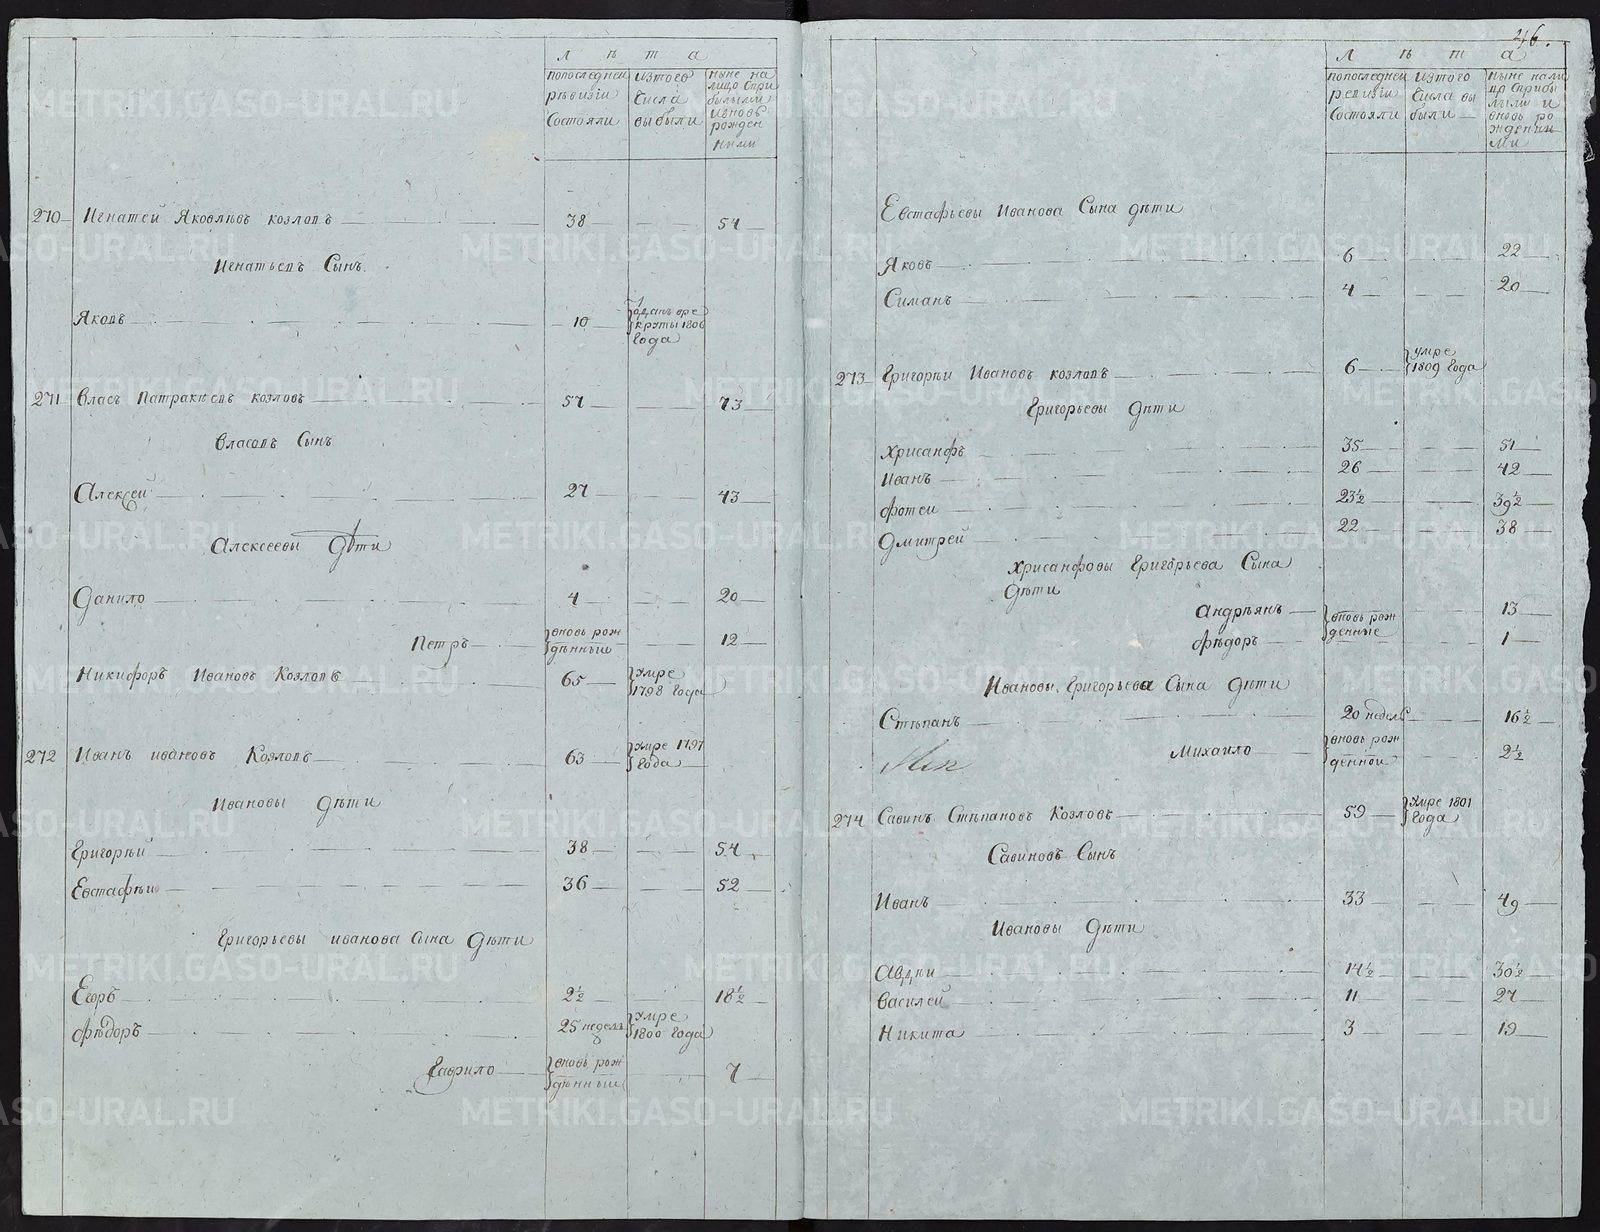 Лѣта
попоследней ревизiи состояли
изтого числа выбыли
ныне на лицо сприбылыми ивновь рожденными
270 Игнатей Яковлевъ козловъ 38 54
Игнатьевъ Сынъ
Яковъ 10 отданъ вре круты 1806 года
271 Власъ Патракѣевъ козловъ 57 73
Власовъ Сынъ
Алексей 27 43
Алексеевы дѣти
Данило 4 20
Петръ вновь рож дѣнныи 12
Никифоръ Ивановъ Козловъ 65 умре 1798 года
272 Иванъ ивановъ Козловъ 63 умре 1797 года
Ивановы дѣти
Григорѣи 38 54
Евстафѣи 36 52
Григорьевы иванова Сына дѣти
Егоръ 2½ 18½
Фѣдоръ 25 недель умре 1800 года
Гаврило вновь рож дѣнныи 7
46.
Лѣта
попоследней ревизiи состояли
изтого числа выбыли
ныне налицо сприбылыми и вновь рожденными
Евстафьевы Иванова Сына дѣти
Яковъ 6 22
Симанъ 4 20
273 Григорѣи Ивановъ козловъ 6 умре 1809 года
Григорьевы дѣти
Хрисанфъ 35 51
Иванъ 26 42
Фотеи 23½ 39½
Дмитрей 22 38
Хрисанфовы Григорьева Сына
дѣти
Андрѣянъ вновь рож денные 13
Фѣдоръ 1
Ивановы Григорьева Сына дѣти
Стѣпанъ 20 недель 16½
Михаило вновь рож денной 2½
274 Савинъ Стѣпановъ Козловъ 59 умре 1801 года
Савиновъ Сынъ
Иванъ 33 49
Ивановы дѣти
Авдѣи 14½ 30½
Василей 11 27
Никита 3 19
METRIKI.GASO-URAL.RU